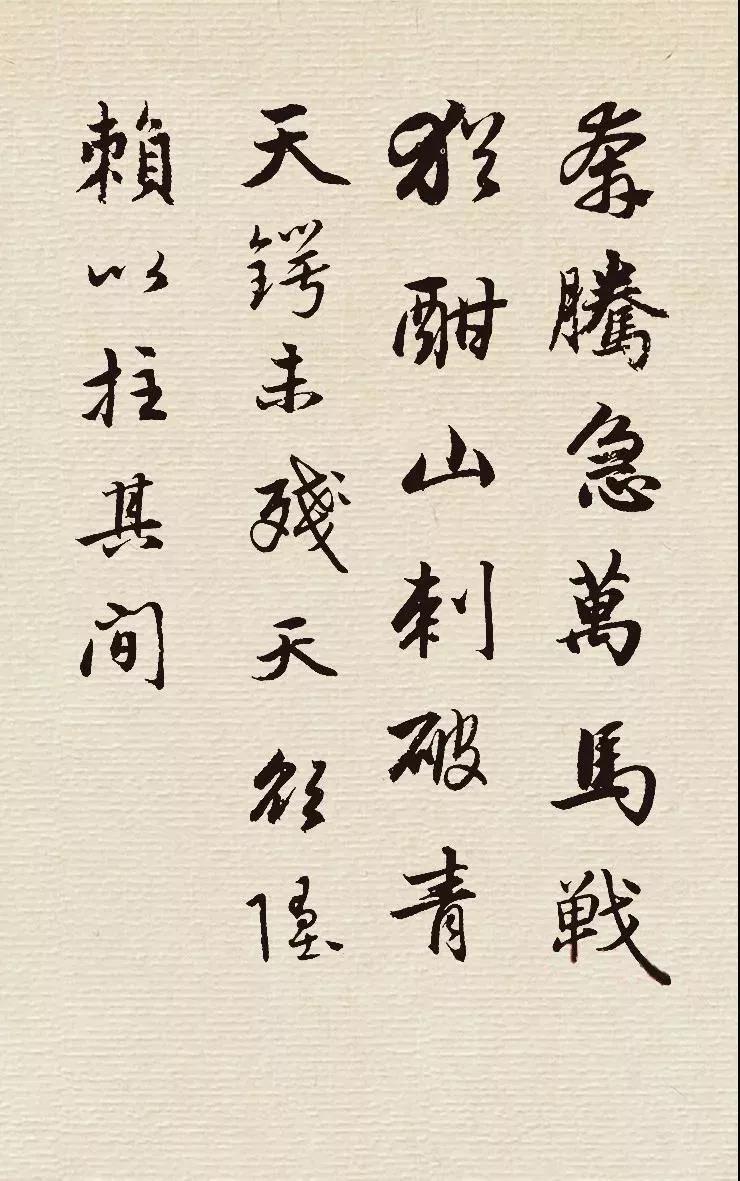 奔騰急萬馬戰
猶酣山刺破青
天鍔未殘天欲墮
賴以拄其間